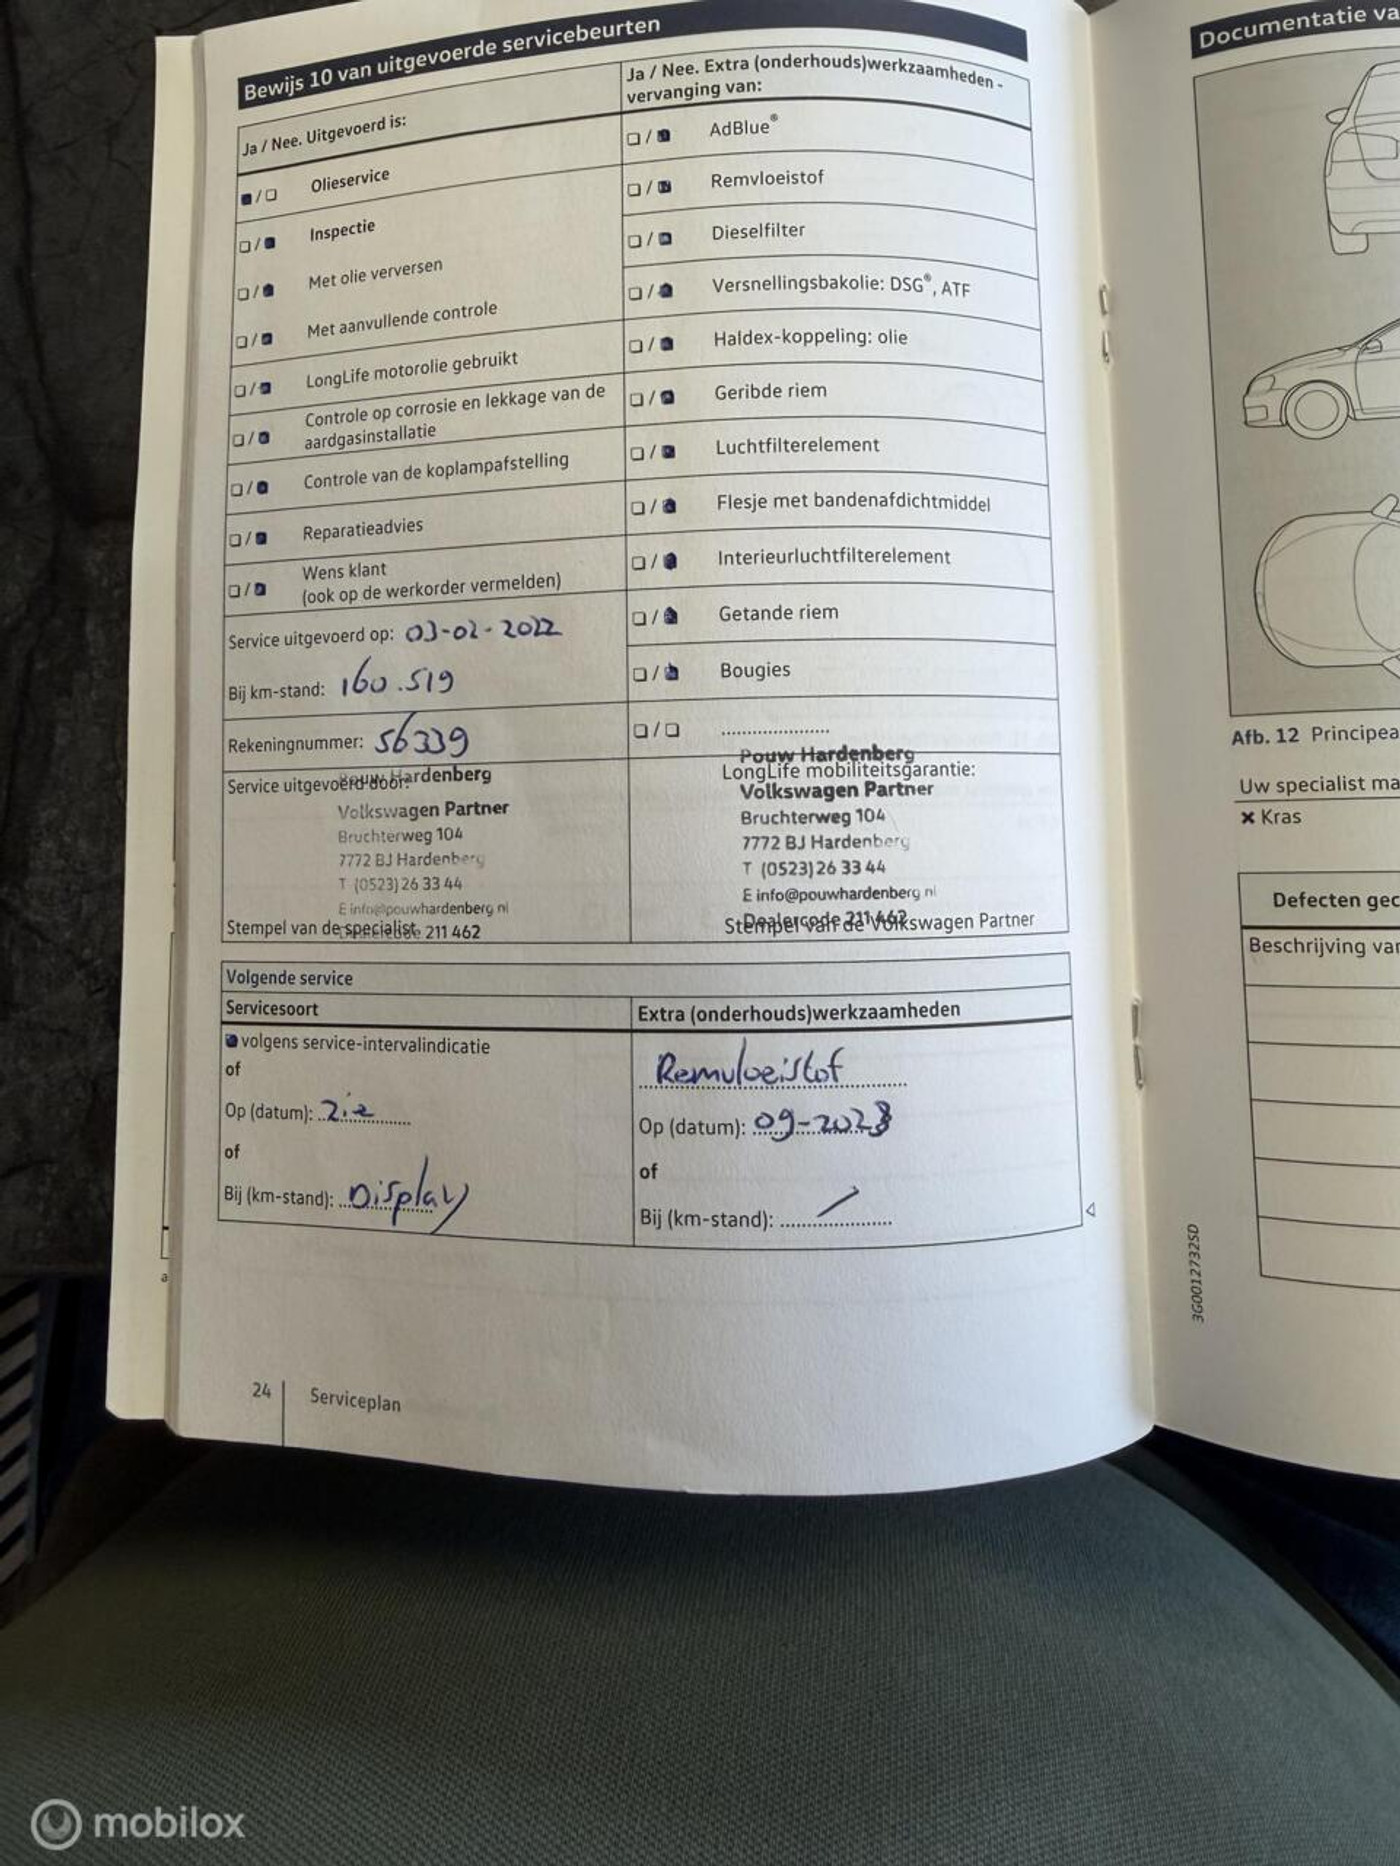 Bewijs 10 van uitgevoerde servicebeurten
Ja / Nee. Uitgevoerd is:
Olieservice
Inspectie
Met olie verversen
Met aanvullende controle
LongLife motorolie gebruikt
Controle op corrosie en lekkage van de
aardgasinstallatie
Controle van de koplampafstelling
Reparatieadvies
Wens klant
(ook op de werkorder vermelden)
Service uitgevoerd op: 03-02-2022
Bij km-stand: 160.519
Rekeningnummer: 56339
Service uitgevoerd door:
Pouw Hardenberg
Volkswagen Partner
Bruchterweg 104
7772 BJ Hardenberg
T (0523) 26 33 44
E info@pouwhardenberg nl
Dealercode 211 462
Stempel van de specialist
Ja / Nee. Extra (onderhouds)werkzaamheden -
vervanging van:
AdBlue®
Remvloeistof
Dieselfilter
Versnellingsbakolie: DSG®, ATF
Haldex-koppeling: olie
Geribde riem
Luchtfilterelement
Flesje met bandenafdichtmiddel
Interieurluchtfilterelement
Getande riem
Bougies
....................
LongLife mobiliteitsgarantie:
Pouw Hardenberg
Volkswagen Partner
Bruchterweg 104
7772 BJ Hardenberg
T (0523) 26 33 44
E info@pouwhardenberg nl
Dealercode 211 462
Stempel van de Volkswagen Partner
Volgende service
Servicesoort
volgens service-intervalindicatie
of
Op (datum): zie
of
Bij (km-stand): Display
Extra (onderhouds)werkzaamheden
Remvloeistof
Op (datum): 09-2023
of
Bij (km-stand): /
24
Serviceplan
Documentatie va
Afb. 12 Principea
Uw specialist ma
× Kras
Defecten gec
Beschrijving var
3G0012732SD
mobilox